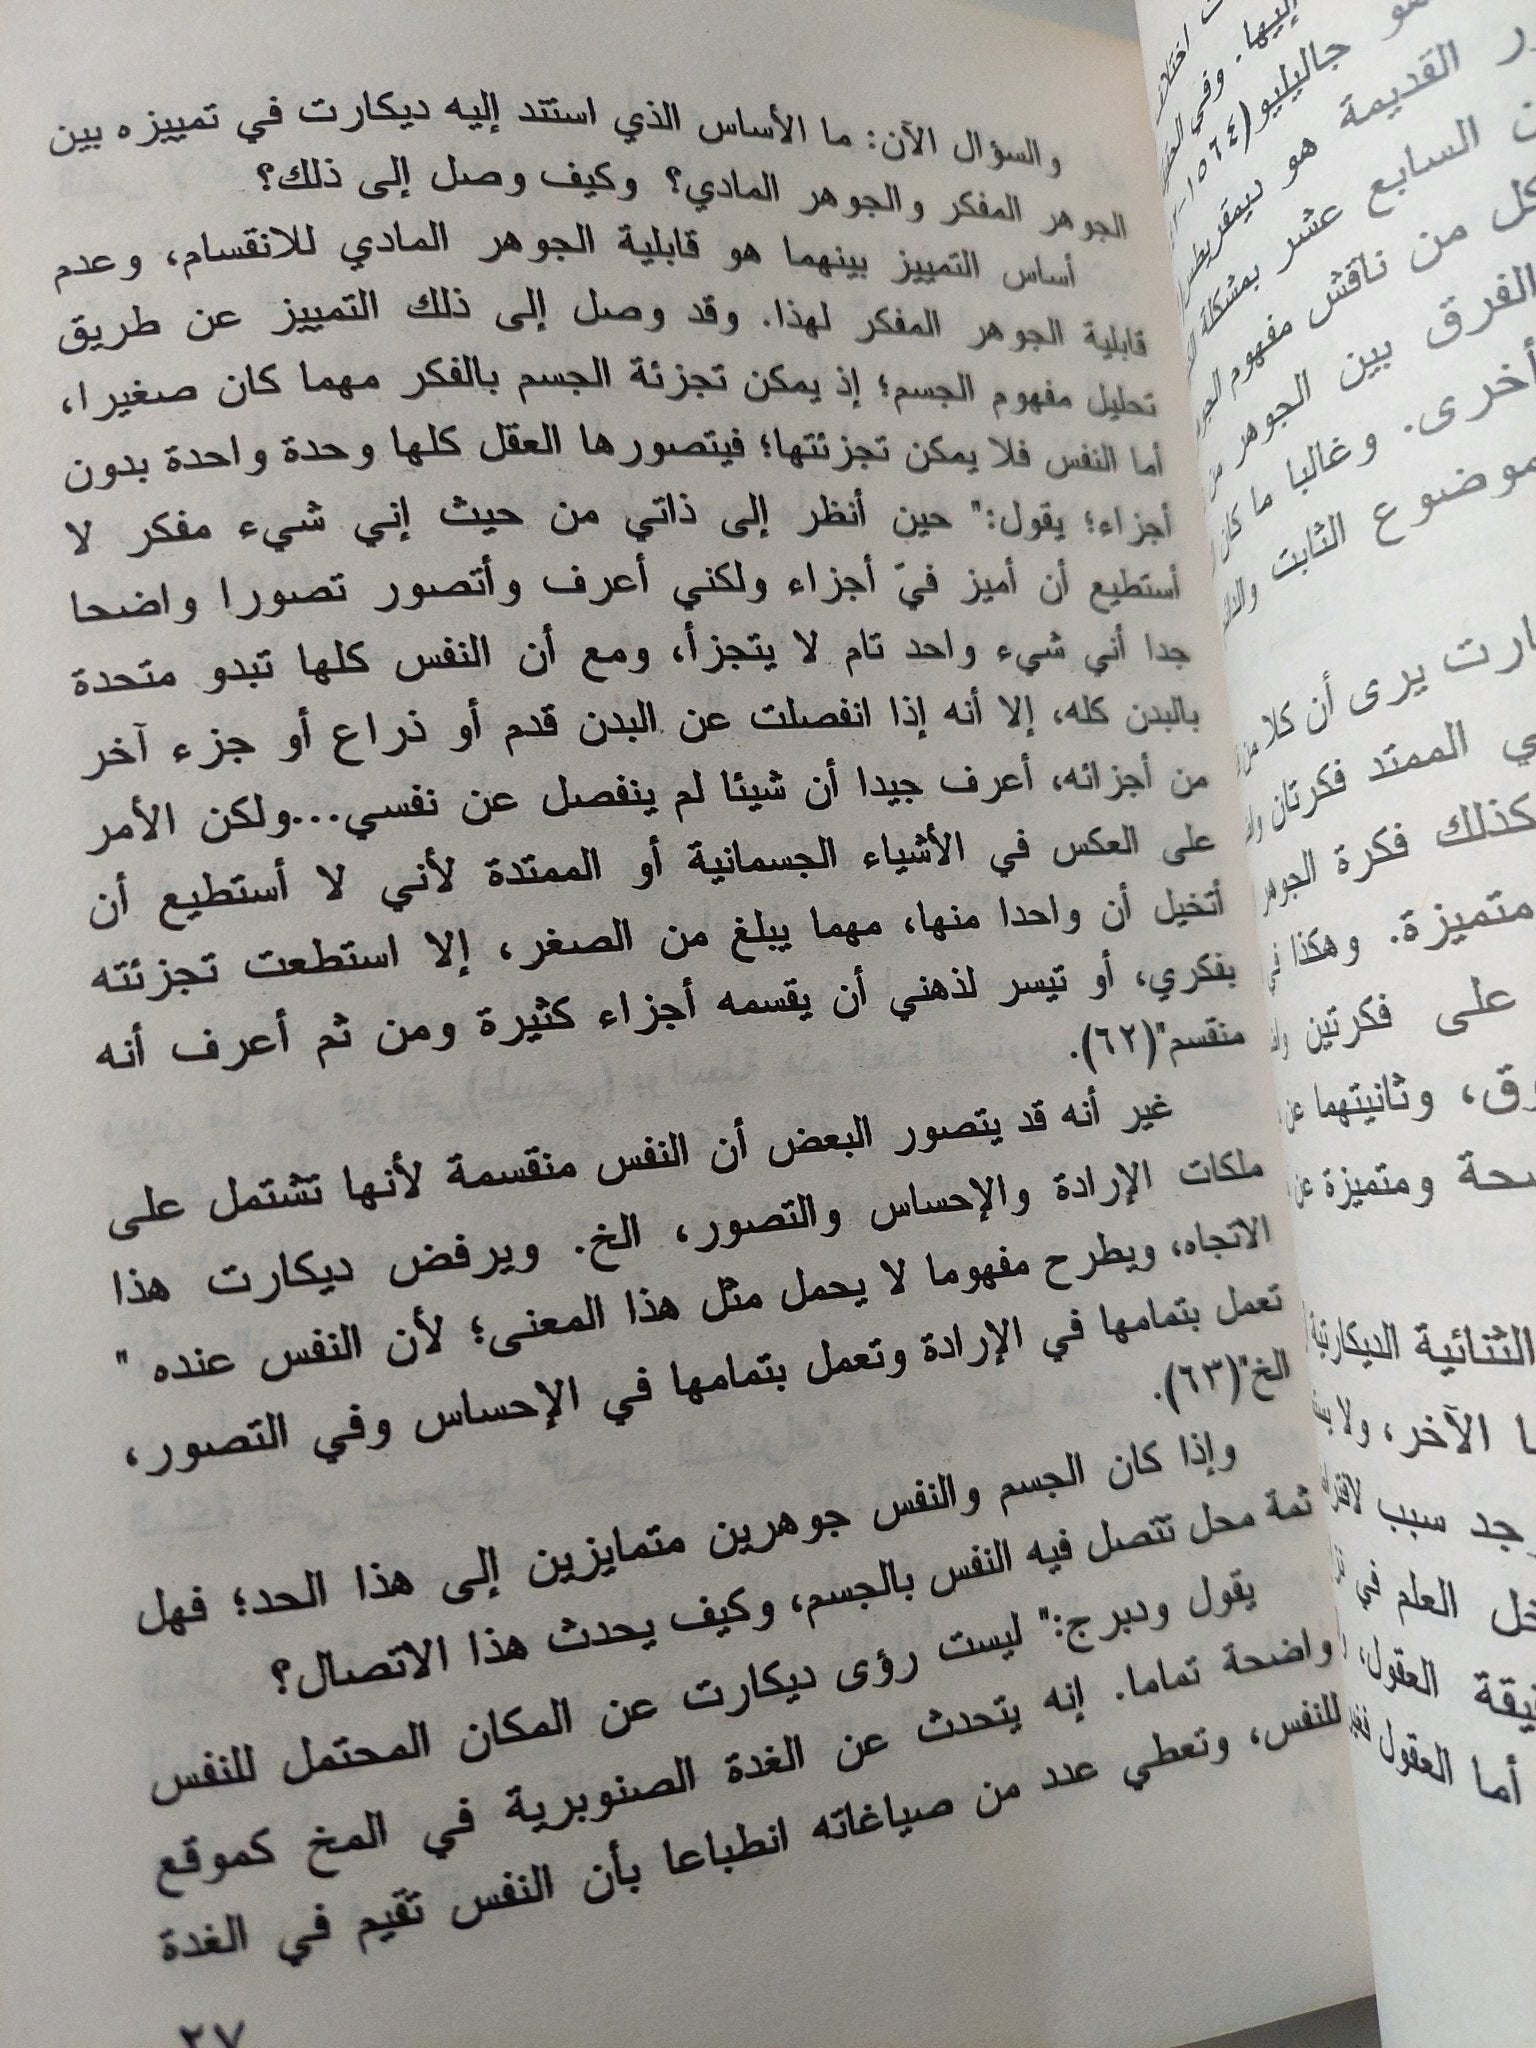 والسؤال الآن: ما الأساس الذي استند إليه ديكارت في تمييزه بين
الجوهر المفكر والجوهر المادي؟ وكيف وصل إلى ذلك؟
أساس التمييز بينهما هو قابلية الجوهر المادي للانقسام، وعدم
قابلية الجوهر المفكر لهذا. وقد وصل إلى ذلك التمييز عن طريق
تحليل مفهوم الجسم؛ إذ يمكن تجزئة الجسم بالفكر مهما كان صغيرا،
أما النفس فلا يمكن تجزئتها؛ فيتصورها العقل كلها وحدة واحدة بدون
أجزاء؛ يقول:" حين أنظر إلى ذاتي من حيث إني شيء مفكر لا
أستطيع أن أميز فيّ أجزاء ولكني أعرف وأتصور تصورا واضحا
جدا أني شيء واحد تام لا يتجزأ، ومع أن النفس كلها تبدو متحدة
بالبدن كله، إلا أنه إذا انفصلت عن البدن قدم أو ذراع أو جزء آخر
من أجزائه، أعرف جيدا أن شيئا لم ينفصل عن نفسي...ولكن الأمر
على العكس في الأشياء الجسمانية أو الممتدة لأني لا أستطيع أن
أتخيل أن واحدا منها، مهما يبلغ من الصغر، إلا استطعت تجزئته
بفكري، أو تيسر لذهني أن يقسمه أجزاء كثيرة ومن ثم أعرف أنه
منقسم"(٦٢).
غير أنه قد يتصور البعض أن النفس منقسمة لأنها تشتمل على
ملكات الإرادة والإحساس والتصور، الخ. ويرفض ديكارت هذا
الاتجاه، ويطرح مفهوما لا يحمل مثل هذا المعنى؛ لأن النفس عنده "
تعمل بتمامها في الإرادة وتعمل بتمامها في الإحساس وفي التصور،
الخ"(٦٣).
وإذا كان الجسم والنفس جوهرين متمايزين إلى هذا الحد؛ فهل
ثمة محل تتصل فيه النفس بالجسم، وكيف يحدث هذا الاتصال؟
يقول ودبرج:" ليست رؤى ديكارت عن المكان المحتمل للنفس
واضحة تماما. إنه يتحدث عن الغدة الصنوبرية في المخ كموقع
للنفس، وتعطي عدد من صياغاته انطباعا بأن النفس تقيم في الغدة
٢٧
إليها. وفي
هو جاليليو(١٥٦٤-
القديمة هو ديمقريطس
السابع عشر بمشكلة
كل من ناقش مفهوم
الفرق بين الجوهر
أخرى. وغالبا ما كان
موضوع الثابت
يرى أن كلا من
الممتد فكرتان
كذلك فكرة الجوهر
متميزة. وهكذا
على فكرتين
وثانيتهما عن
ومتميزة عن
الثنائية الديكارتية
الآخر، ولا
سبب
العلم في
العقول،
أما العقول